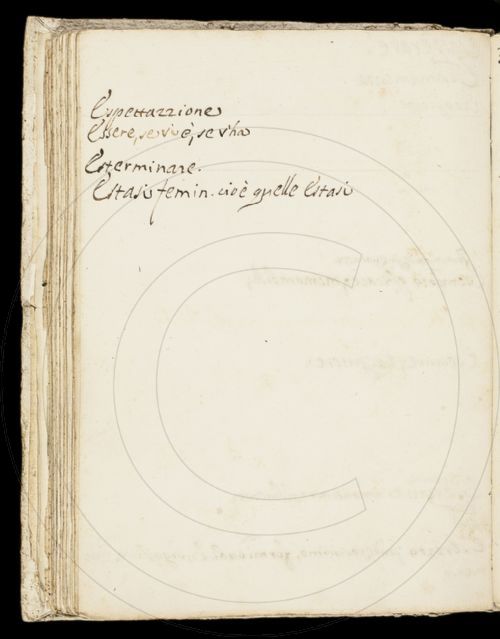 Espettazzione
Essere, se vi è, se v'ha
Esterminare.
Estasi femin. cioè quelle Estasi